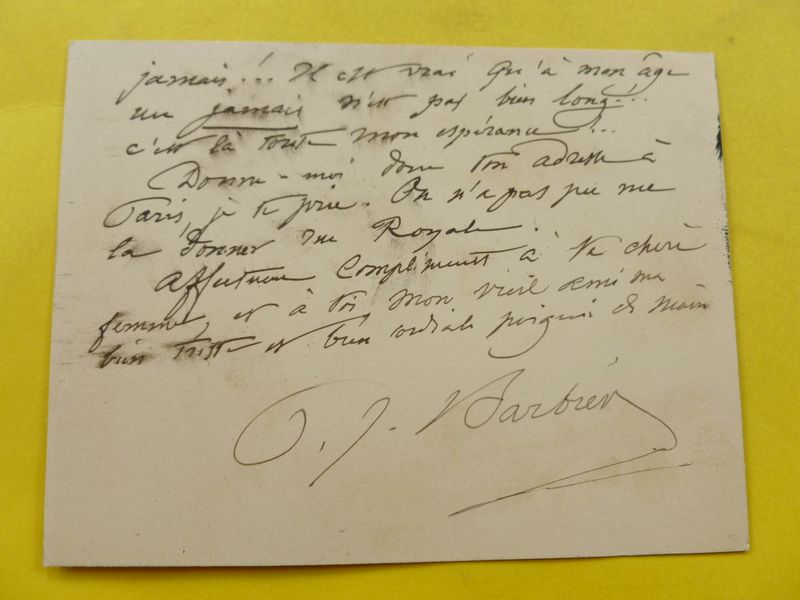 jamais!.. Il est vrai qu'à mon âge
un jamais n'est pas bien long!..
c'est là toute mon espérance!...
Donne-moi donc ton adresse à
Paris, je te prie. On n'a pas pu me
la donner rue Royale.
Affectueux compliments à ta chère
femme, et à toi, mon vieil ami ma
bien triste et bien cordiale poignée de main
P. J. Barbier